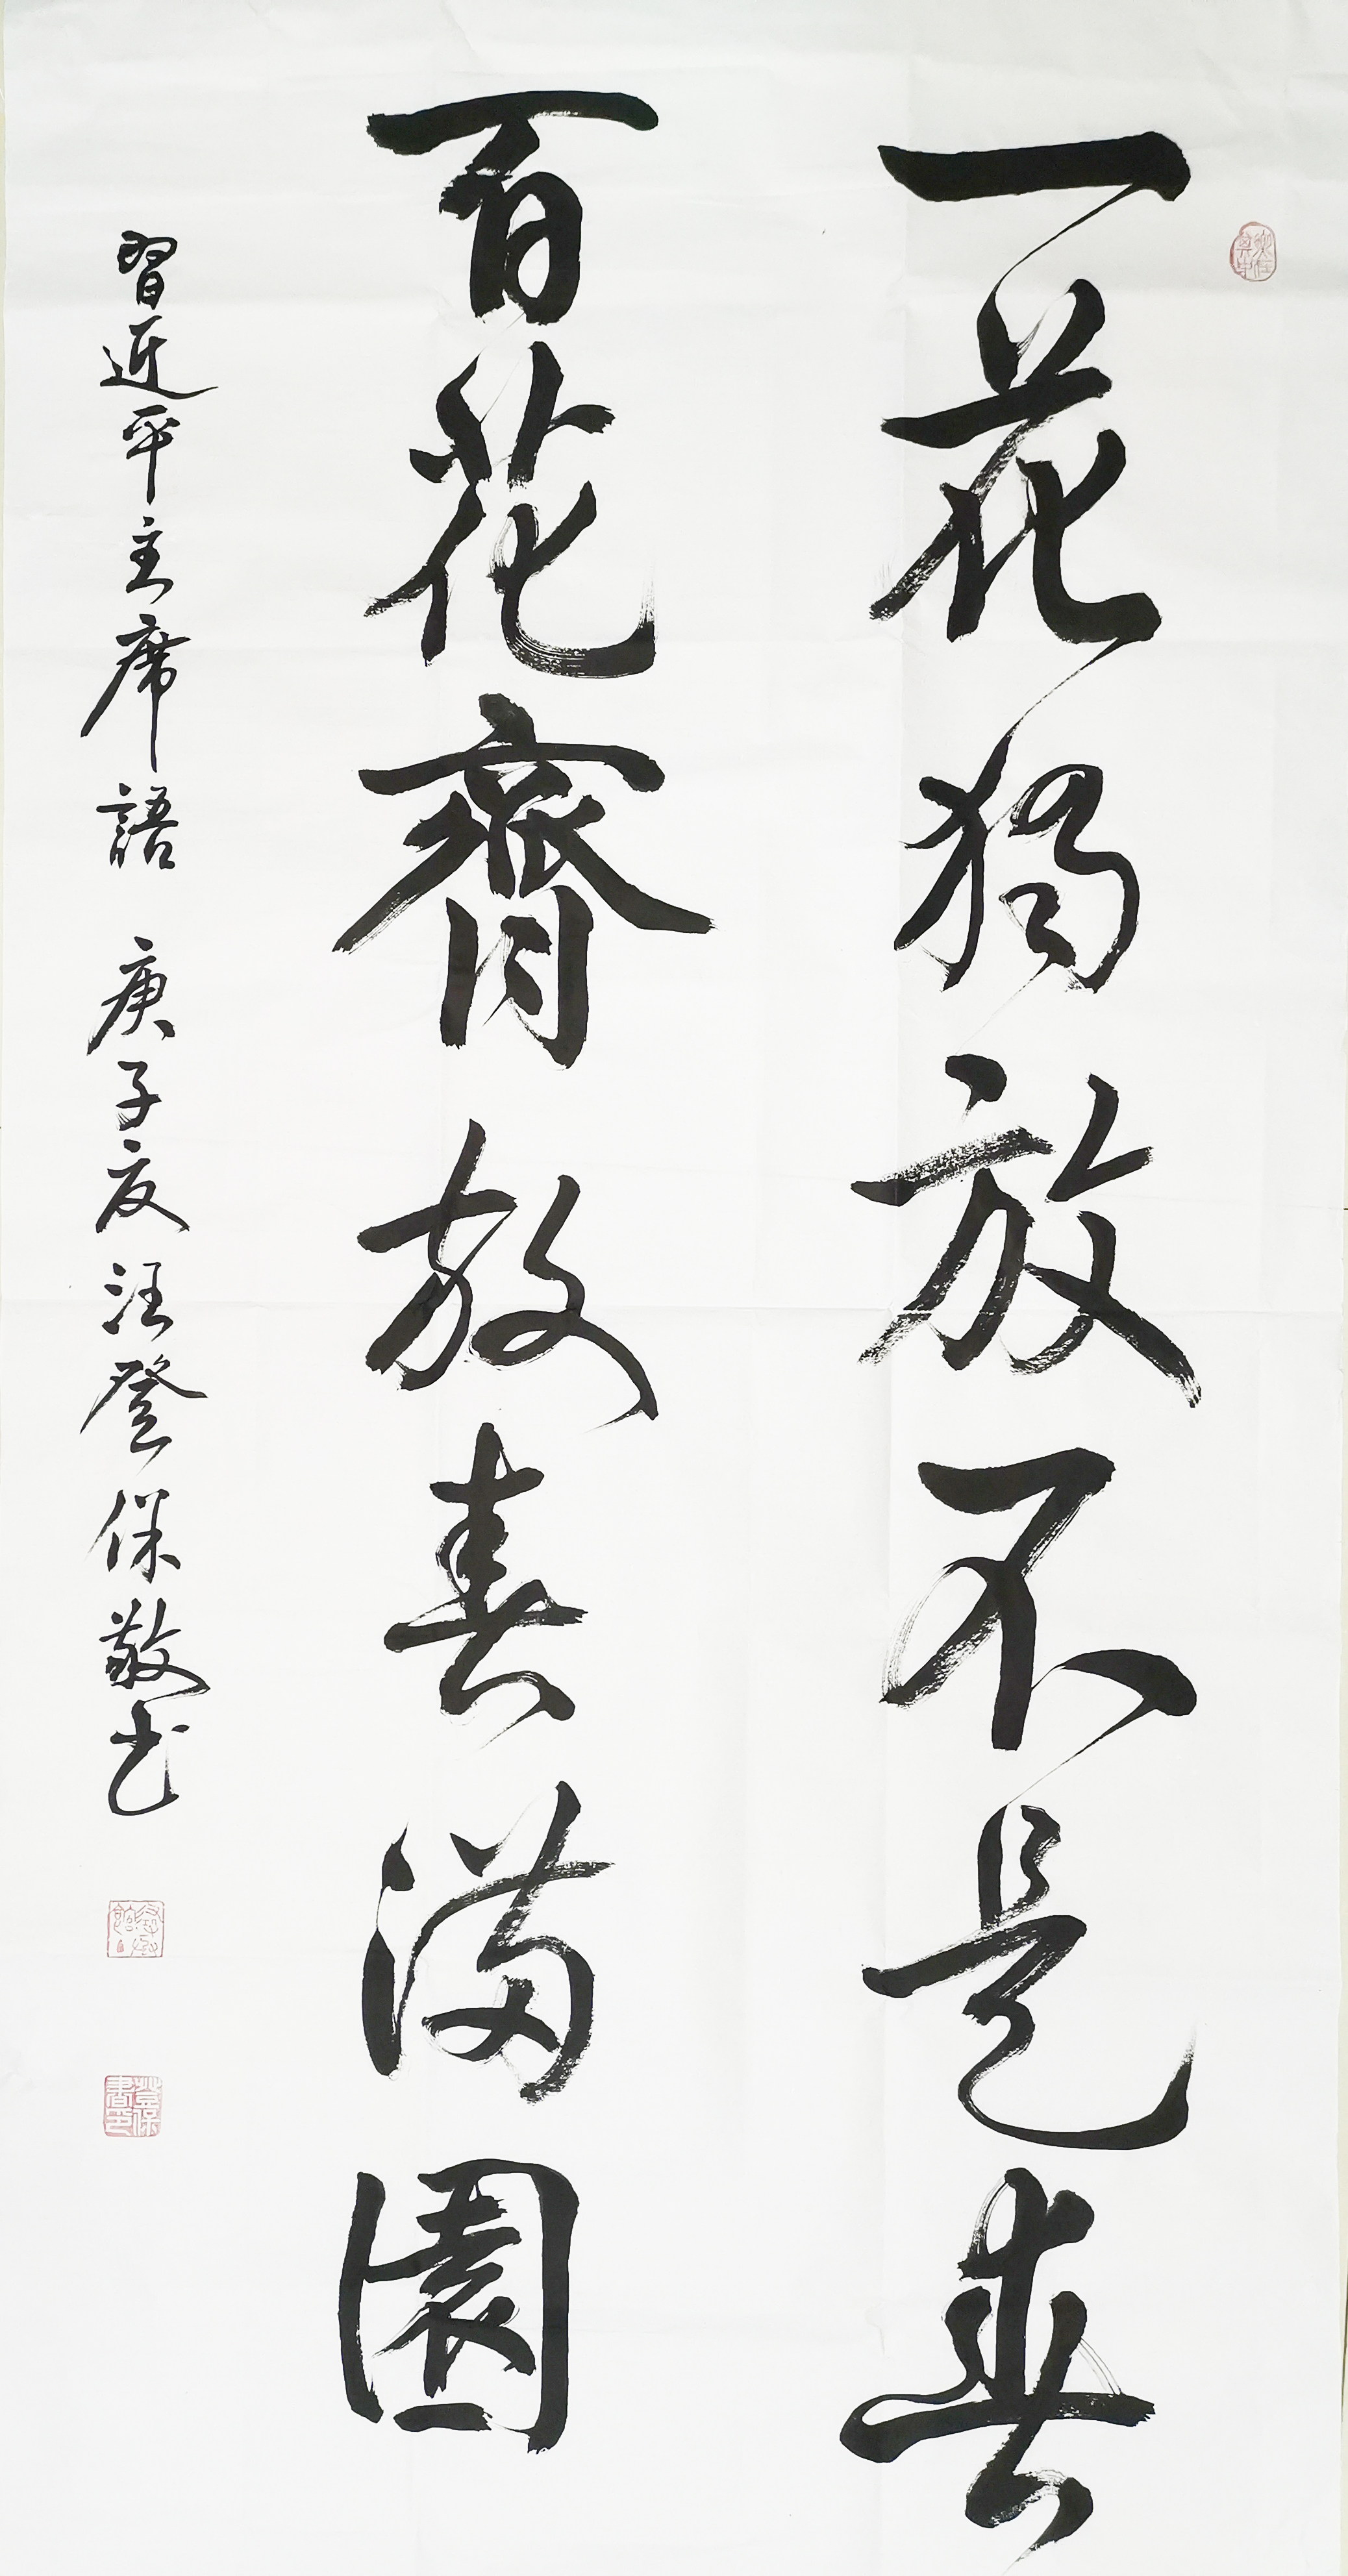 一花独放不是春
百花齊放春滿園
習近平主席語 庚子夏汪登保敬书
登保書印